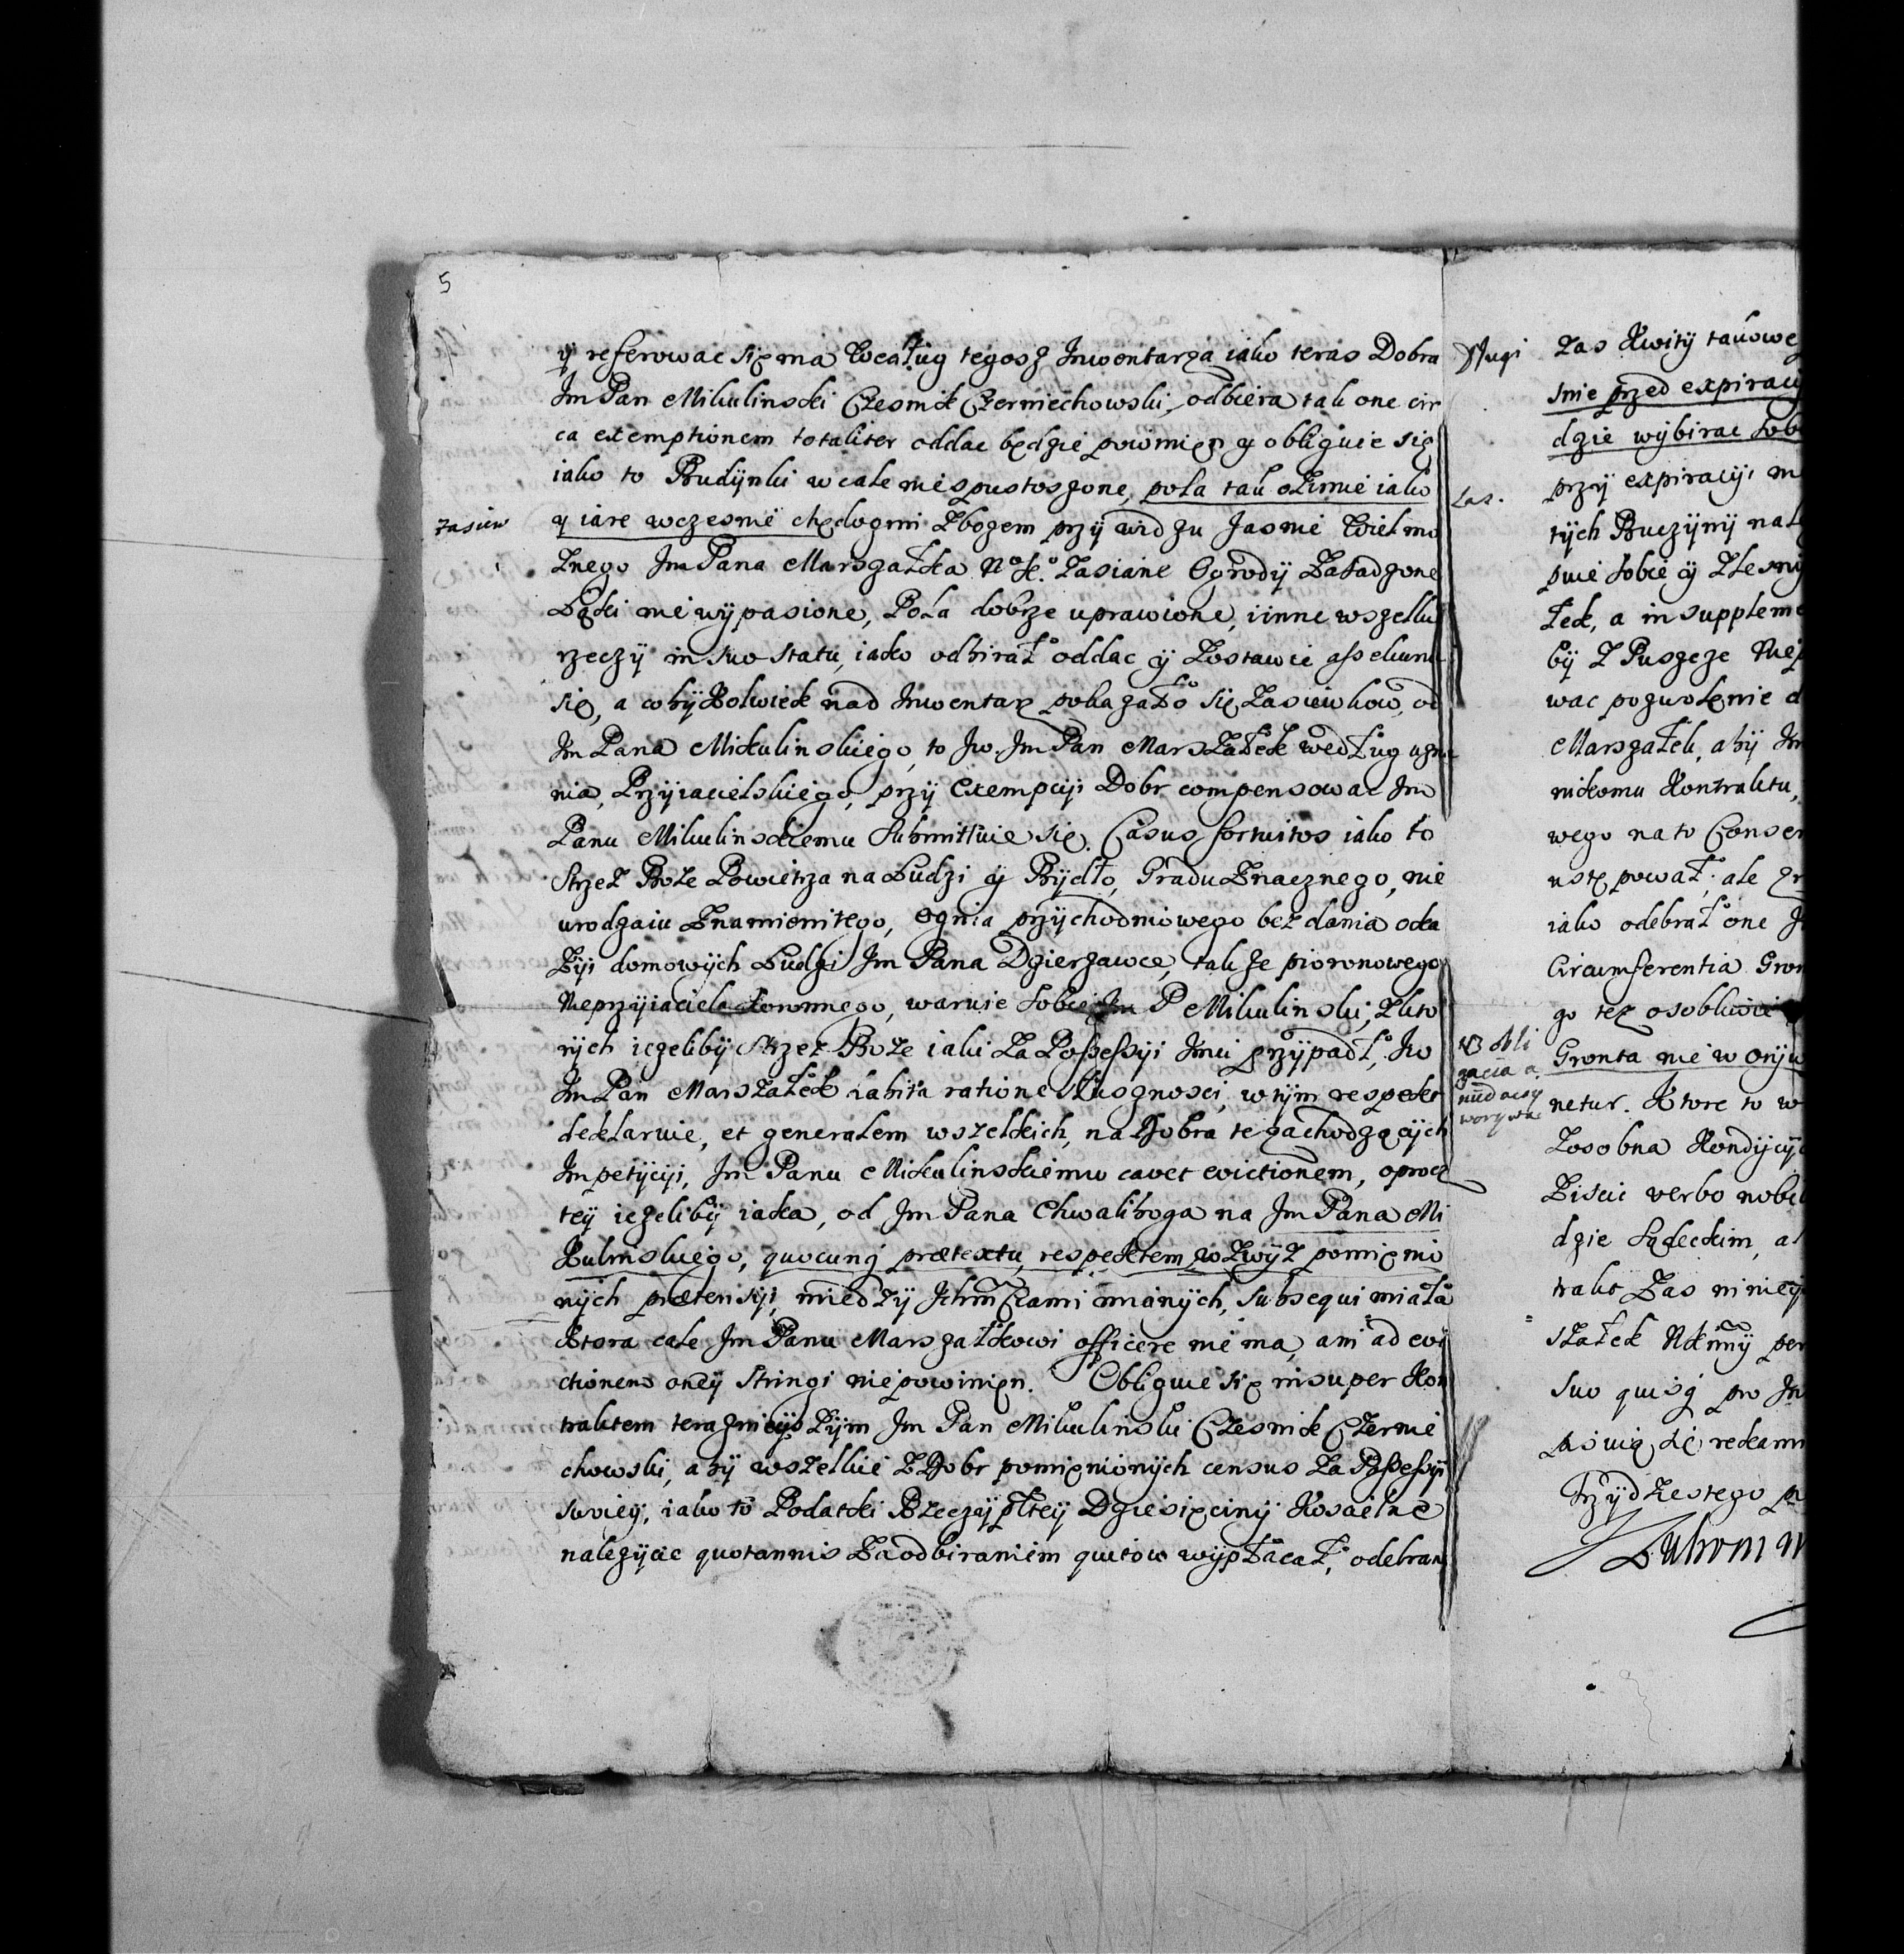 5
ÿ referowac się ma według tegosz Inwentarza iako teras Dobra
Jm Pan Mikulinski Czesnik Czerniechowski, odbiera tak one cir
ca exemptionem totaliter oddac będzie powinien y obliguie się
iako to Budÿnki wcale nie spustoszone, pola tak ozimie iako
zasiew
y iare wczesnie chędogim Zbozem przÿ widzu Jasnie Wielmo
Znego Jm Pana Marszałka Zasiane Ogrodÿ Zasadzone
Łąki nie wÿpasione, Pola dobrze uprawione, i inne wszelki
rzeczÿ in suo statu, iako odbirał oddac ÿ Zostawic assekuru
się, a cobÿ Kolwiek nad Inwentarz pokazało się Zasiewkow, od
Jm Pana Mikulinskiego, to Jw. Jm Pan MarsZałek według uzna
nia, Przÿiacielskiego, przÿ Exempcÿi Dobr compensowac Jm
Panu Mikulinskiemu Submittuie się. Casus fortuitos iako to
StrzeZ BoZe Powietrza na Ludzi ÿ Bÿdło, Gradu Znacznego, nie
urodzaiu Znamienitego, ognia przÿchodniowego bez dania oka
Zÿi domowÿch Ludzi Jm Pana Dzierzawce, takze pioronowego
Nieprzÿiaciela koronnego, waruie sobie Jm P Mikulinski, Zkto
rÿch iezelibÿ StrzeZ BoZe iaki Za Possessÿi Jmci przÿpadł, Jw
Jm Pan MarsZałek habita ratione słusznosci, w tÿm respekt
deklaruie, et generalem wszelkich, na Dobra te zachodzącÿch
Impetÿcÿi, Jm Panu Mikulinskiemu cavet evictionem, oprocz
teÿ iezelibÿ iaka, od Jm Pana Chwaliboga na Jm Pana Mi
Kulinskiego, quocunq prætextu, respektem wZwÿZ pomięnio
nÿch prætensÿi, międZÿ Jchm mianÿch, subsequi miała
Ktora cale Jm Panu Marszałkowi officere nie ma, ani ad evi
ctionem oneÿ Stringi niepowinięn. Obliguie się insuper Kon
traktem teraznieÿsZÿm Jm Pan Mikulinski Czesnik Czernie
chowski, abÿ wszelkie Z Dobr pomięnionÿch census Za Possessÿi
swoieÿ, iako to Podatki RzeczÿpLteÿ Dziesięcinÿ Koscielne
nalezÿcie quotannis Za odbiraniem quitow wÿpłacał, odebran
Długi
Las.
obli
gacia
Zas Kwitÿ takowe
snie przed expiracÿ
dzie wÿbirac sob
przÿ expiracÿi
tÿch Buczÿnÿ
sobie ÿ Zlesnÿ
łek, a in supplem
bÿ Z Puszcze
wac pozwolęnie
Marszałek, abÿ
nikomu Kontraktu,
wego na to Consen
ustępował, ale
iako odebrał one
Circumferentia
go tez osobliwie
Gronta nie w
netur. Ktore to w
Zosobna Kondÿcÿ
Ziscic verbo nobi
dzie Sądeckim,
trakt Zas niniey
sZałek
suo quisq pro
się rekami
TrzÿdZestego